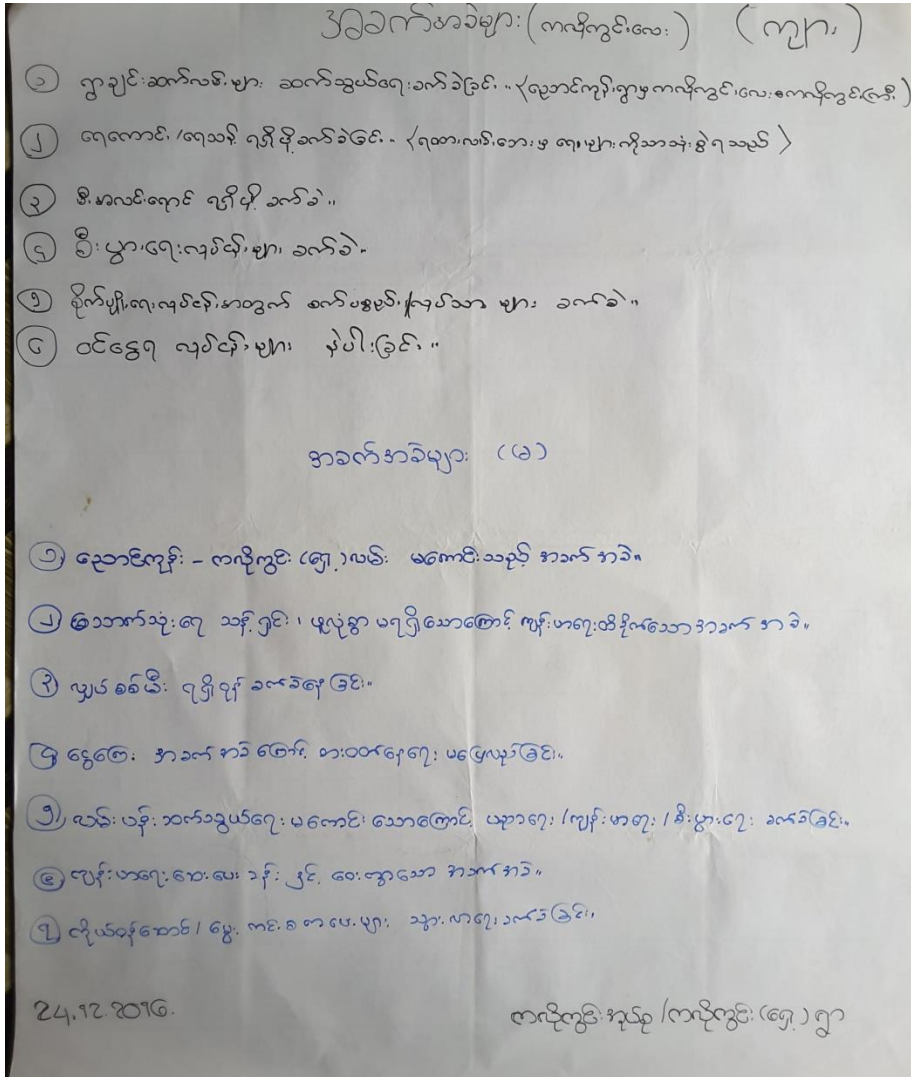 အခက်အခဲများ (ကလိုကွင်းလေး) (ကျား)
၁ ရွာချင်းဆက်လမ်းများ ဆက်သွယ်ရေးခက်ခဲခြင်း။ (ညောင်ကုန်းရွာမှ ကလိုကွင်းလေး မှ ကလိုကွင်းကြီး)
၂ ရေကောင်း/ရေသန့် ရရှိဖို့ခက်ခဲခြင်း - (ရထားလမ်းဘေးမှ ရေများကိုသာသုံးစွဲရသည်)
၃ မီးအလင်းရောင် ရရှိဖို့ ခက်ခဲ။
၄ စီးပွားရေးလုပ်ငန်းများ ခက်ခဲ။
၅ စိုက်ပျိုးရေးလုပ်ငန်းအတွက် စက်ပစ္စည်း/လုပ်သားများ ခက်ခဲ။
၆ ဝင်ငွေရ လုပ်ငန်းများ နဲပါးခြင်း။
အခက်အခဲများ (မ)
၁ ညောင်ကုန်း - ကလိုကွင်း (ရှေ့) လမ်း မကောင်းသည့် အခက်အခဲ။
၂ သောက်သုံးရေ သန့်ရှင်း၊ ဖူလုံစွာ မရရှိသောကြောင့် ကျန်းမာရေးထိခိုက်သော အခက်အခဲ။
၃ လျှပ်စစ်မီး ရရှိရန် ခက်ခဲနေခြင်း။
၄ ငွေကြေး အခက်အခဲကြောင့် စားဝတ်နေရေး မပြေလည်ခြင်း။
၅ လမ်းပန်းဆက်သွယ်ရေး မကောင်းသောကြောင့် ပညာရေး/ကျန်းမာရေး/စီးပွားရေး ခက်ခဲခြင်း။
၆ ကျန်းမာရေးဆေးပေးခန်းနှင့် ဝေးကွာသော အခက်အခဲ။
၇ ကိုယ်ဝန်ဆောင်/မွေးကင်းစ ကလေးများ သွားလာရေးခက်ခဲခြင်း။
24.12.2016.
ကလိုကွင်းအုပ်စု/ကလိုကွင်း (ရှေ့) ရွာ